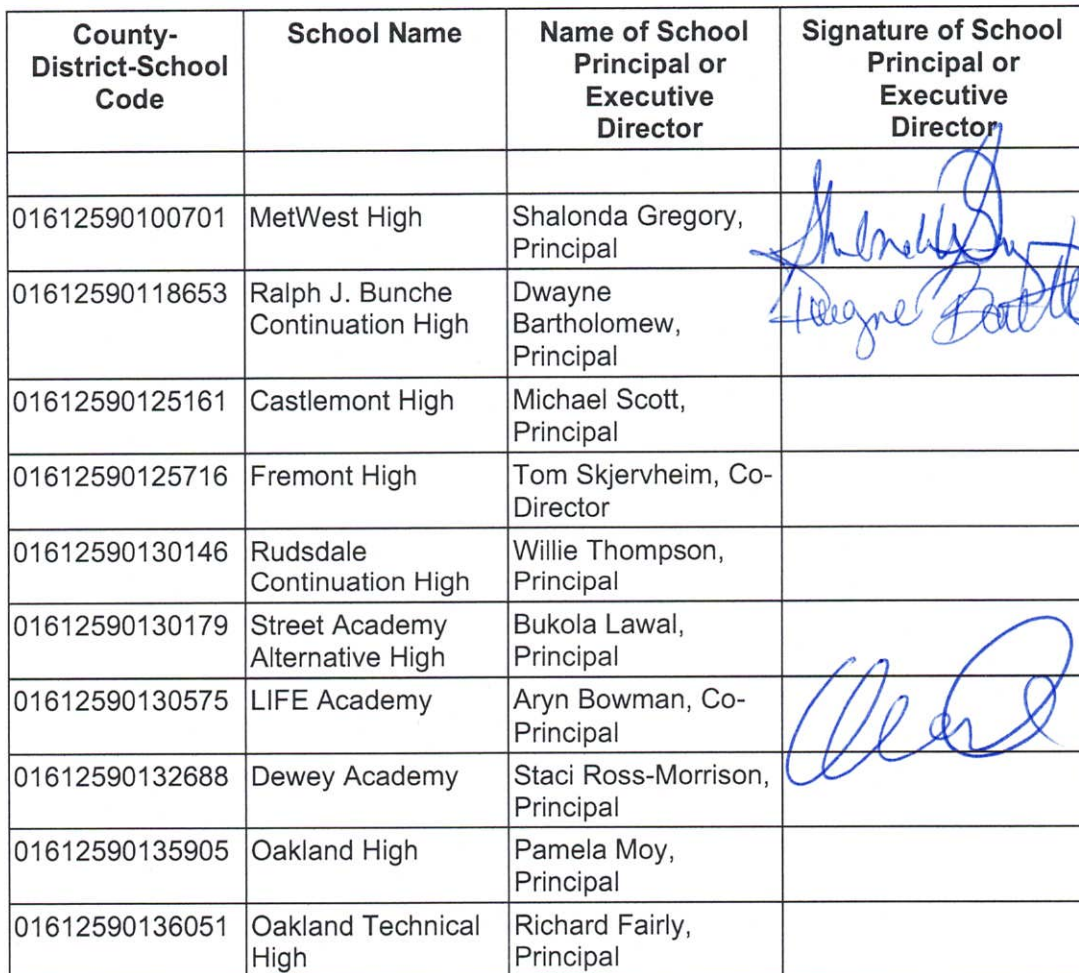 County-District-School Code | School Name | Name of School Principal or Executive Director | Signature of School Principal or Executive Director
01612590100701 | MetWest High | Shalonda Gregory, Principal
01612590118653 | Ralph J. Bunche Continuation High | Dwayne Bartholomew, Principal
01612590125161 | Castlemont High | Michael Scott, Principal
01612590125716 | Fremont High | Tom Skjervheim, Co-Director
01612590130146 | Rudsdale Continuation High | Willie Thompson, Principal
01612590130179 | Street Academy Alternative High | Bukola Lawal, Principal
01612590130575 | LIFE Academy | Aryn Bowman, Co-Principal
01612590132688 | Dewey Academy | Staci Ross-Morrison, Principal
01612590135905 | Oakland High | Pamela Moy, Principal
01612590136051 | Oakland Technical High | Richard Fairly, Principal